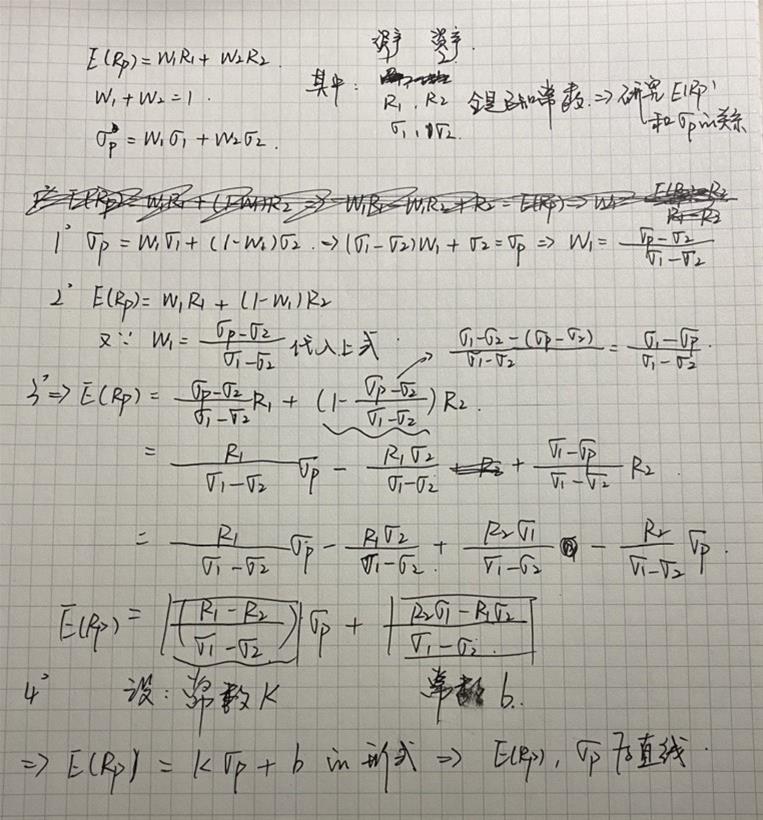 资产 资产
E(Rp) = W1R1 + W2R2. 1 2
W1 + W2 = 1. 其中: R1, R2 全是已知常数. ⇒ 研究 E(Rp)
σp = W1σ1 + W2σ2. σ1, σ2. 和 σp in 关系
1° σp = W1σ1 + (1-W1)σ2. ⇒ (σ1-σ2)W1 + σ2 = σp ⇒ W1 = (σp-σ2)/(σ1-σ2)
2° E(Rp) = W1R1 + (1-W1)R2
又∵ W1 = (σp-σ2)/(σ1-σ2) 代入上式. (σ1-σ2-(σp-σ2))/(σ1-σ2) = (σ1-σp)/(σ1-σ2).
3° ⇒ E(Rp) = (σp-σ2)/(σ1-σ2) R1 + (1 - (σp-σ2)/(σ1-σ2)) R2.
= R1/(σ1-σ2) σp - R1σ2/(σ1-σ2) + (σ1-σp)/(σ1-σ2) R2.
= R1/(σ1-σ2) σp - R1σ2/(σ1-σ2) + R2σ1/(σ1-σ2) - R2/(σ1-σ2) σp.
E(Rp) = ((R1-R2)/(σ1-σ2)) σp + (R2σ1-R1σ2)/(σ1-σ2)
4° 设: 常数 K 常数 b.
⇒ E(Rp) = Kσp + b in 形式 ⇒ E(Rp), σp 为直线.